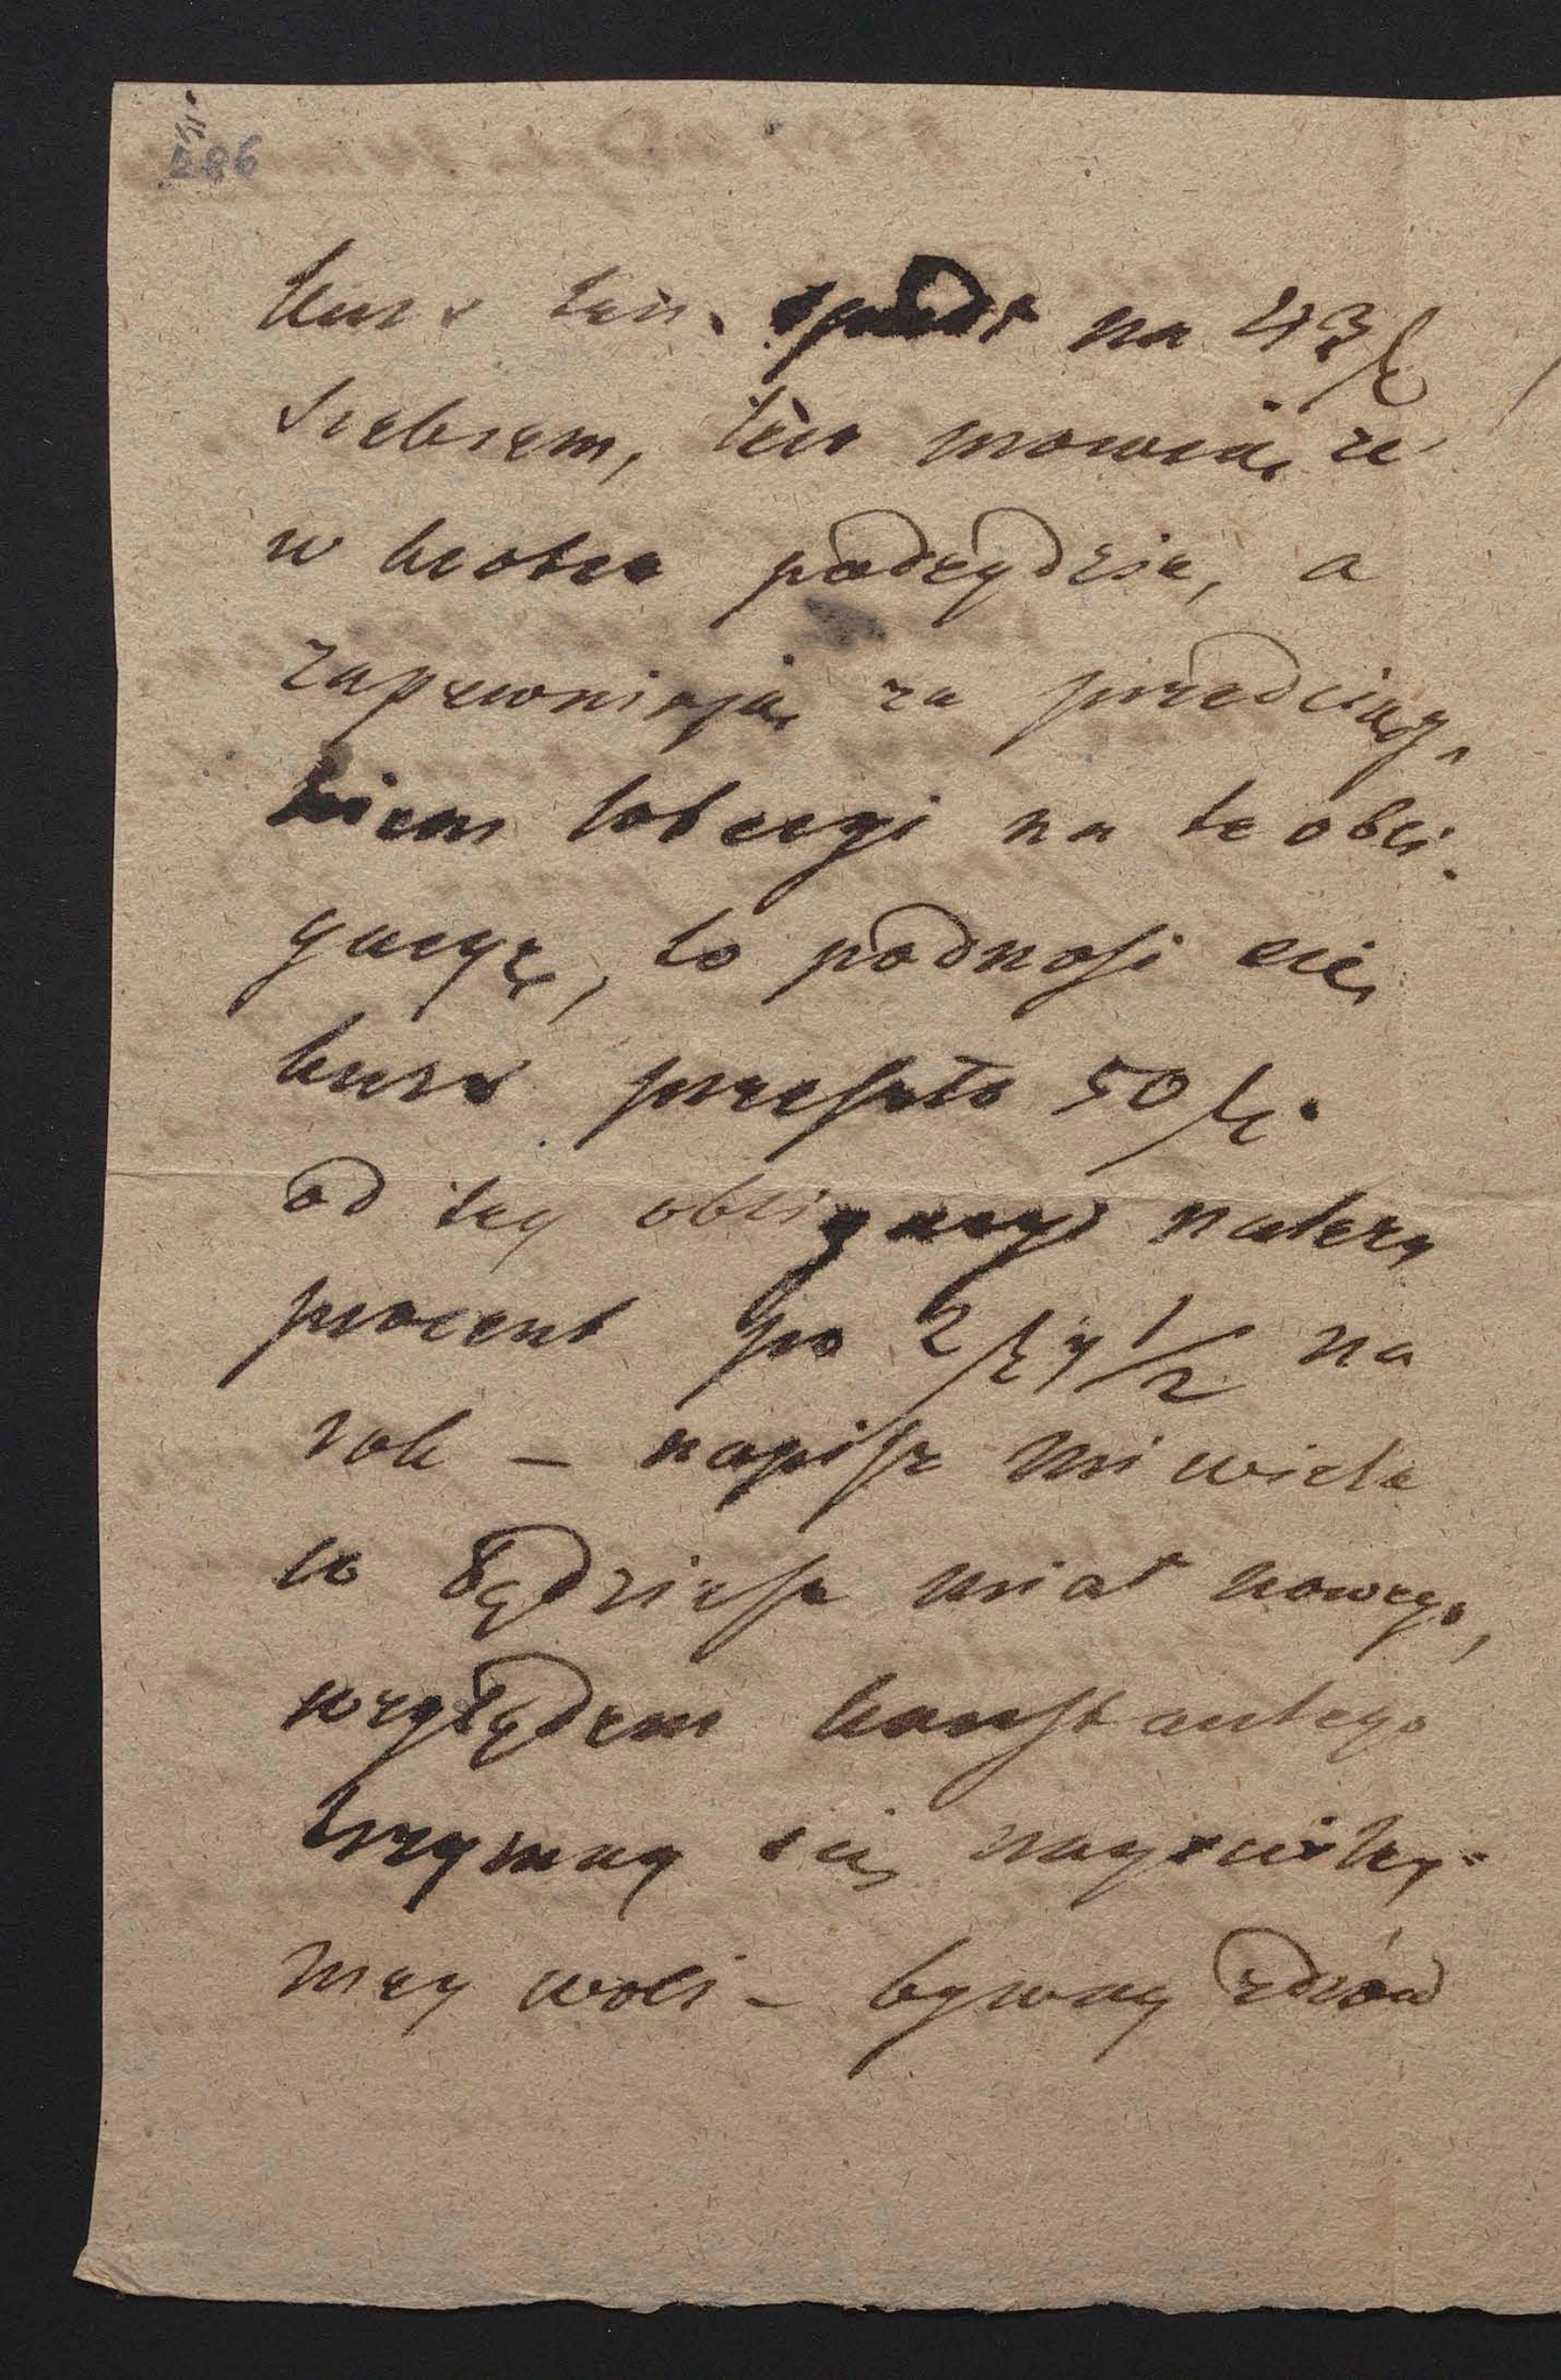 286
kurs ten spadł na 43 f
srebrem, lecz mowią, że
w krotce podeydzie, a
zapewniają za przeciąg
kiem loteryi na te obli-
gacyę, to podnosi się
kurs przeszło 50 f.
od tey obligacyi należy
procent po 2 f 1/2 na
rok – napisz mi wiele
co będziesz miał nowego,
względem konstantego
trzymay się nayściśley
mey woli – byway zdrów